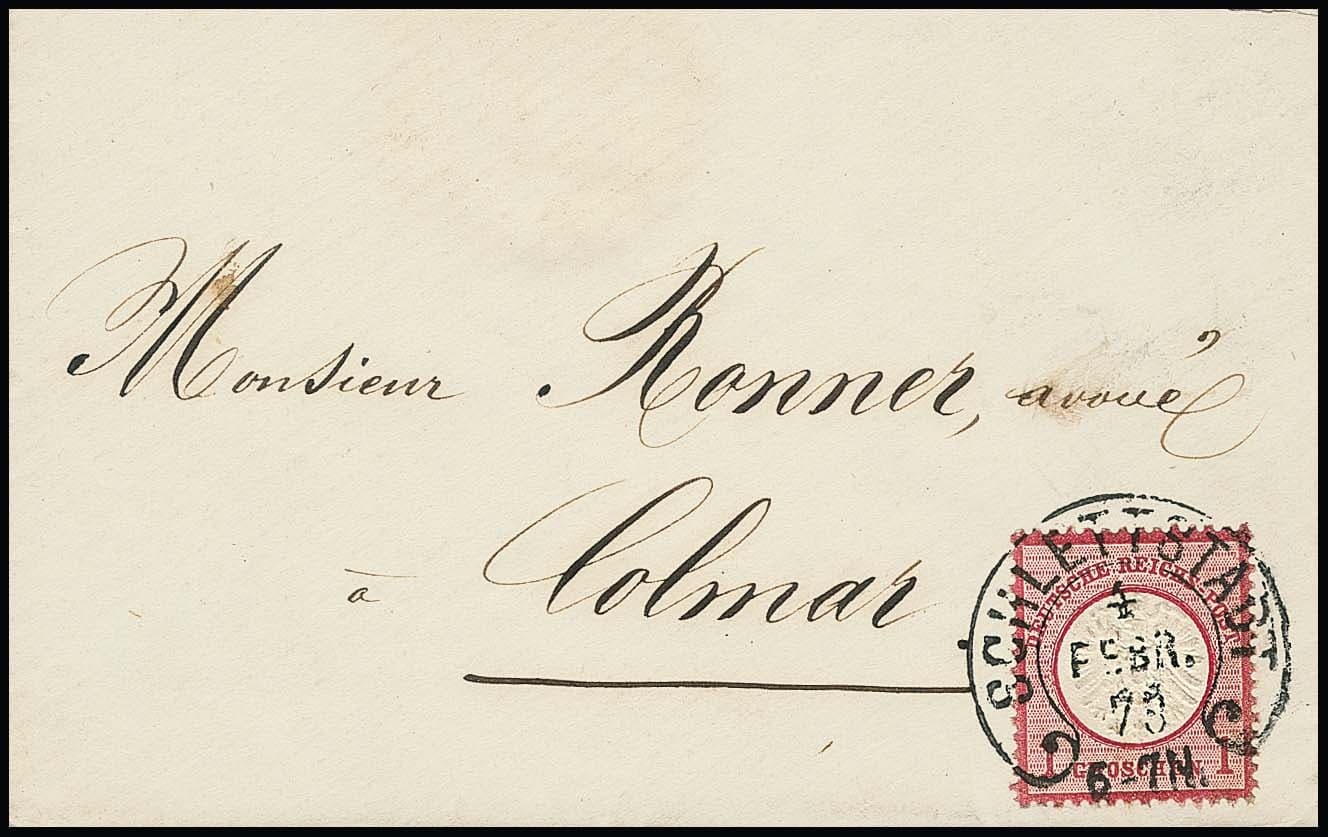 Monsieur Ronner, avoué
à Colmar
SCHLETTSTADT
DEUTSCHE REICHS-POST
FEBR.
73
6-7N.
1 GROSCHEN 1